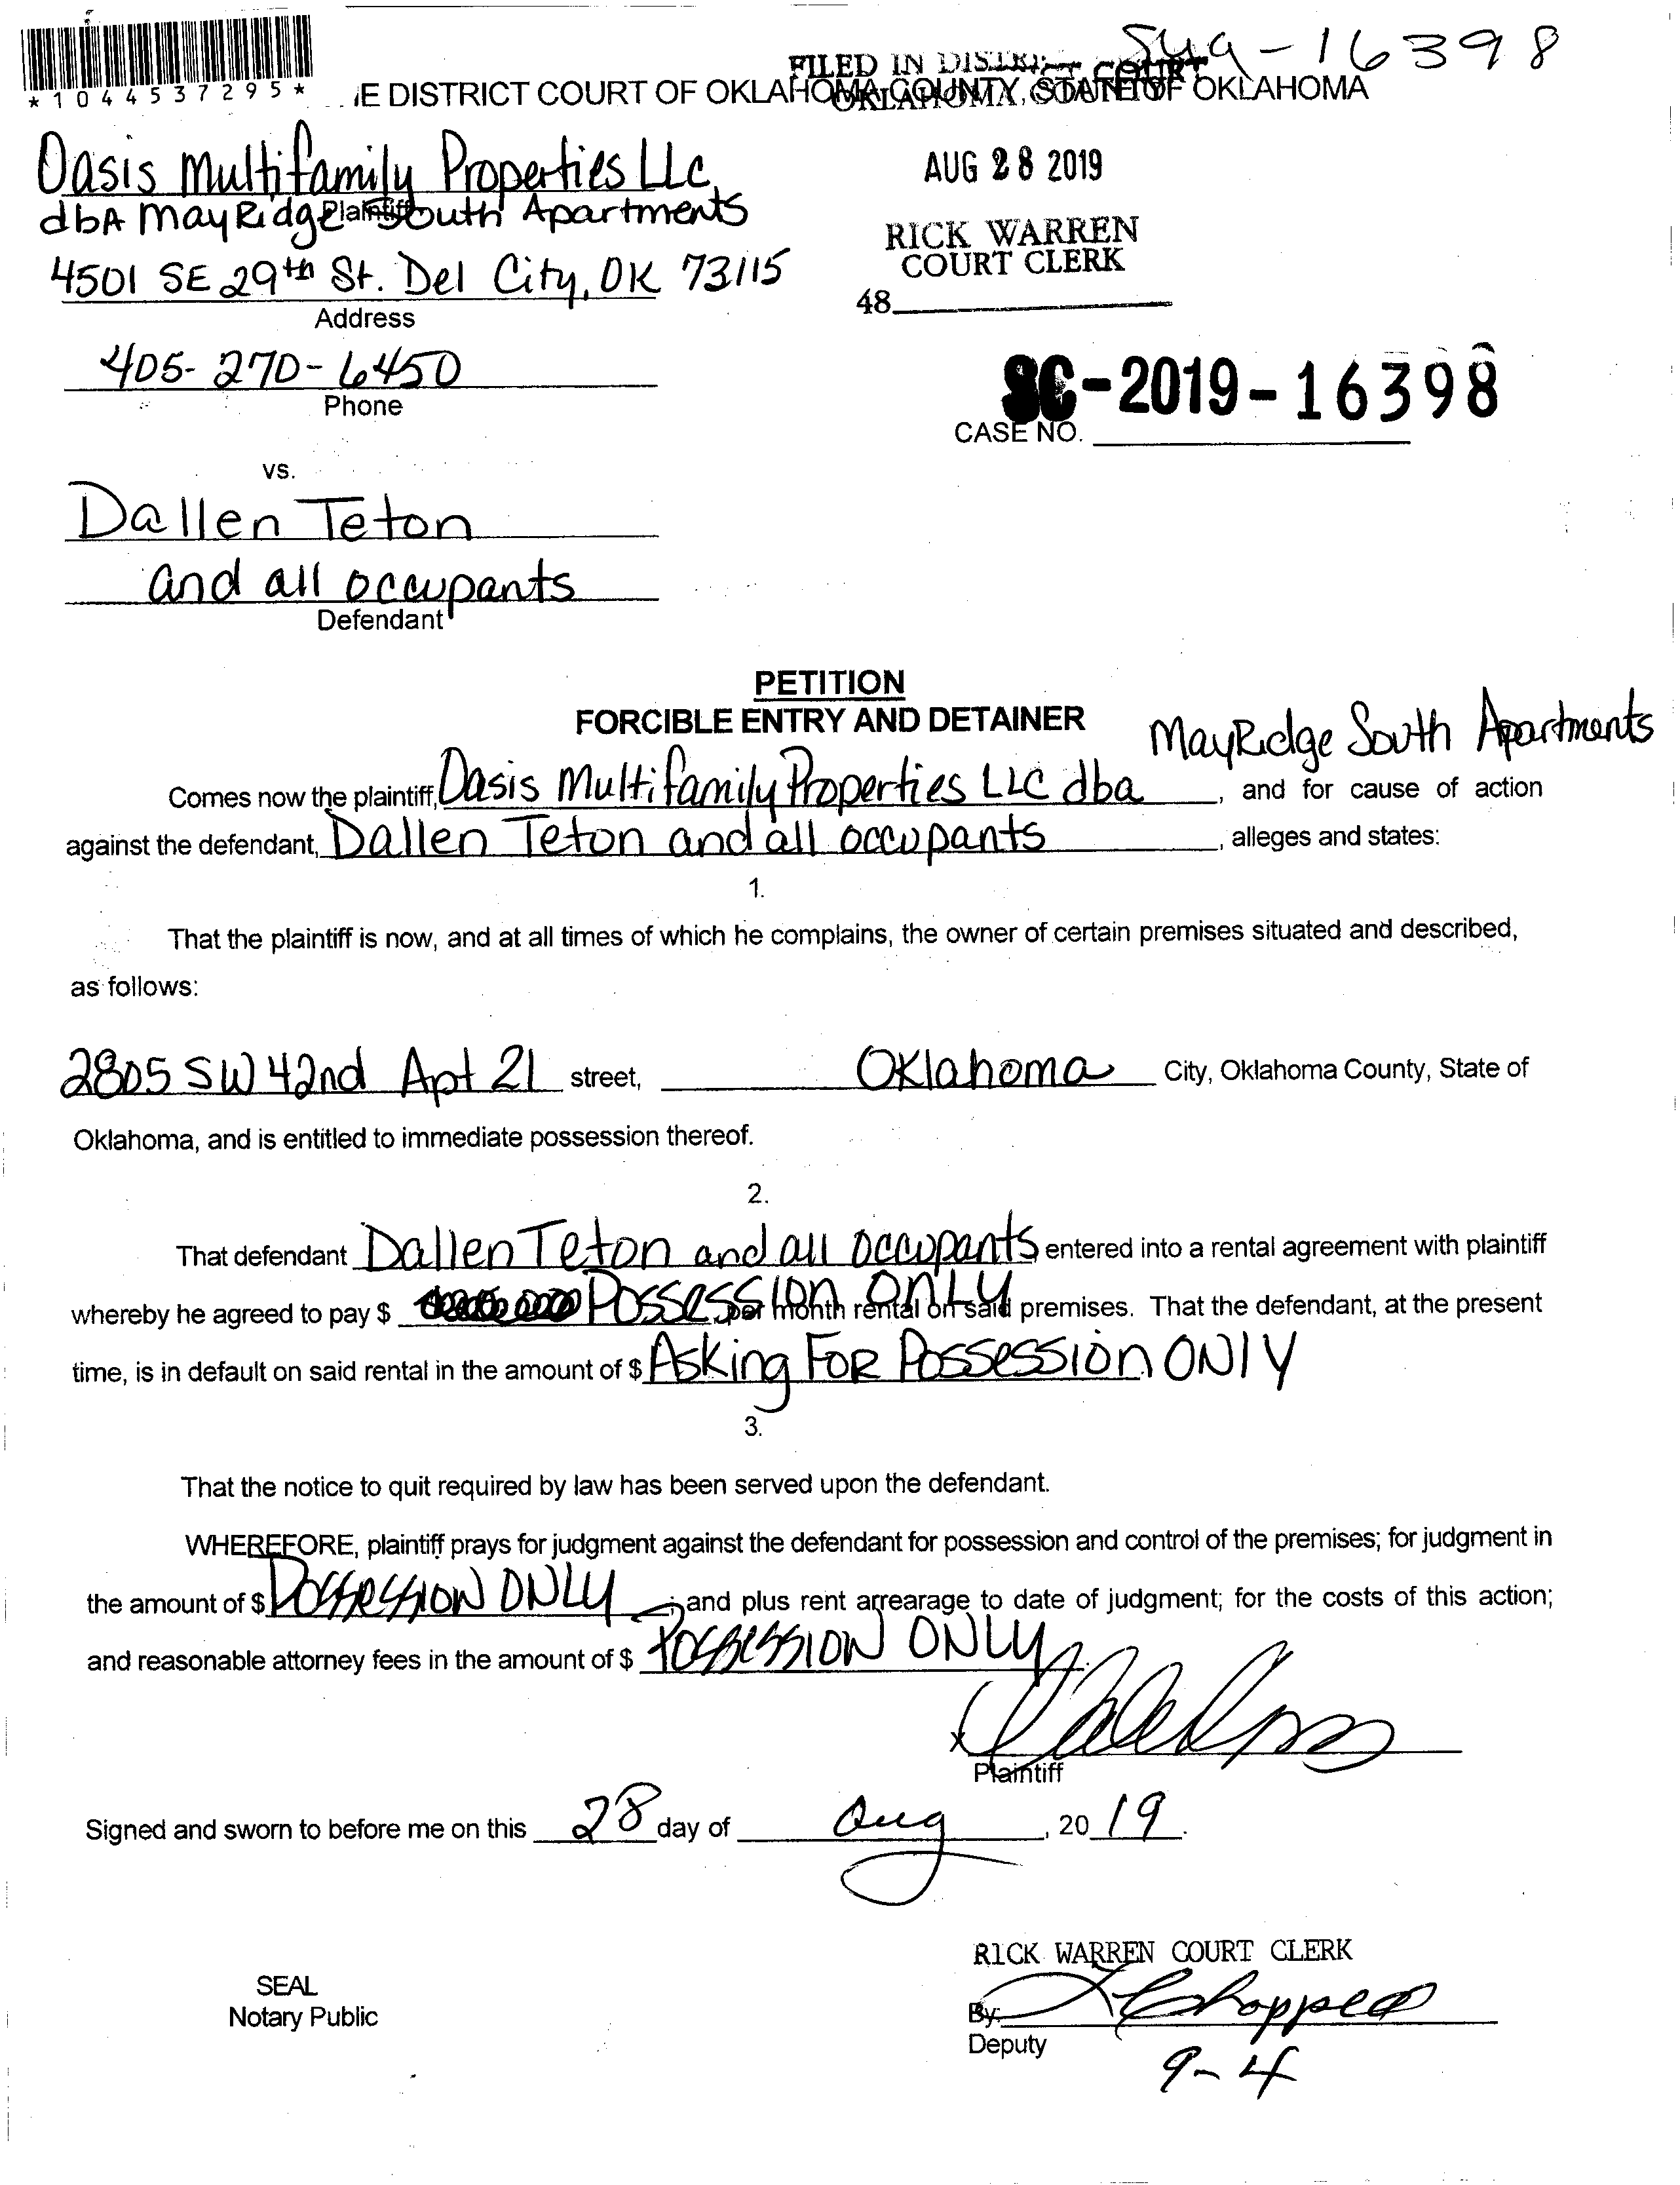 16398
FILED IN DISTRICT COURT
OKLAHOMA COUNTY
*1044537295*
E DISTRICT COURT OF OKLAHOMA COUNTY, STATE OF OKLAHOMA
Oasis Multifamily Properties LLc
Plaintiff
dbA MayRidge South Apartments
AUG 28 2019
RICK WARREN
COURT CLERK
48
4501 SE 29th St. Del City, OK 73115
Address
405-270-6450
Phone
SC-2019-16398
CASE NO.
vs.
Dallen Teton
and all occupants
Defendant
PETITION
FORCIBLE ENTRY AND DETAINER
MayRidge South Apartments
Comes now the plaintiff, Oasis Multifamily Properties LLC dba, and for cause of action
against the defendant, Dallen Teton and all occupants, alleges and states:
1.
That the plaintiff is now, and at all times of which he complains, the owner of certain premises situated and described,
as follows:
2805 SW 42nd Apt 21 street, Oklahoma City, Oklahoma County, State of
Oklahoma, and is entitled to immediate possession thereof.
2.
That defendant Dallen Teton and all occupants entered into a rental agreement with plaintiff
whereby he agreed to pay $ Possession ONLY per month rental on said premises. That the defendant, at the present
time, is in default on said rental in the amount of $ Asking FOR Possession ONlY
3.
That the notice to quit required by law has been served upon the defendant.
WHEREFORE, plaintiff prays for judgment against the defendant for possession and control of the premises; for judgment in
the amount of $ POSSESSION ONLY; and plus rent arrearage to date of judgment; for the costs of this action;
and reasonable attorney fees in the amount of $ POSSESSION ONLY.
x
Plaintiff
Signed and sworn to before me on this 28 day of Aug, 2019.
RICK WARREN COURT CLERK
SEAL
Notary Public
By:
Deputy
9-4